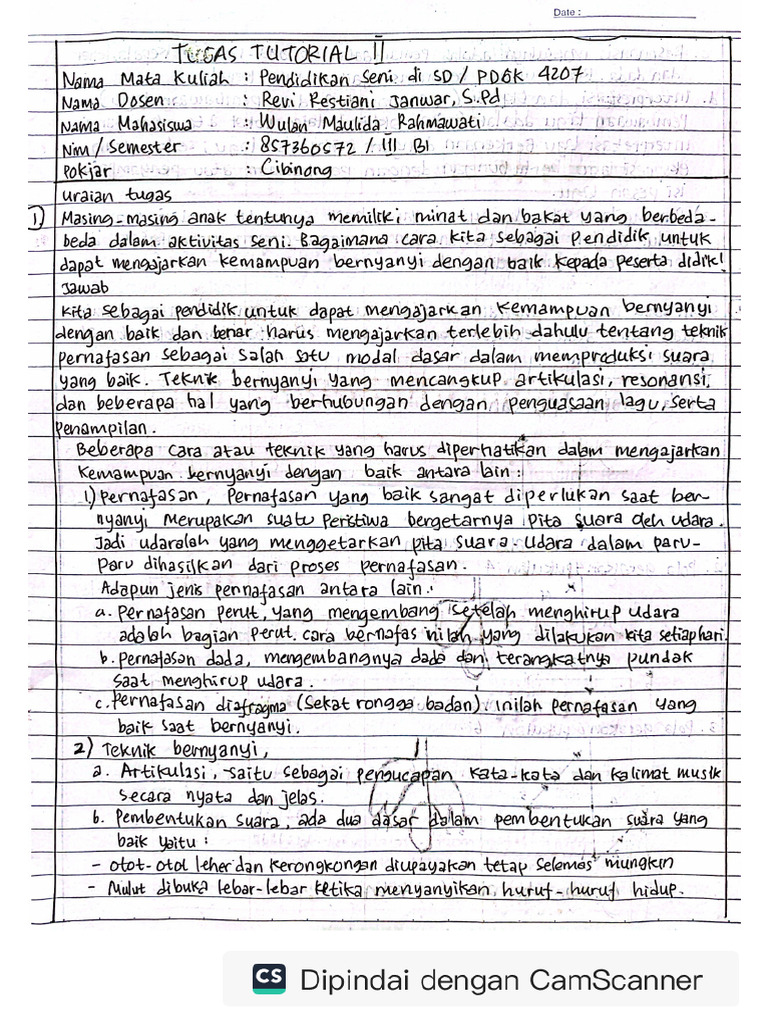 Date :
TUGAS TUTORIAL II
Nama Mata Kuliah : Pendidikan Seni di SD / PDGK 4207
Nama Dosen : Revi Restiani Janwar, S.Pd
Nama Mahasiswa : Wulan Maulida Rahmawati
Nim / Semester : 857360572 / III BI
Pokjar : Cibinong
Uraian tugas
1) Masing-masing anak tentunya memiliki minat dan bakat yang berbeda-
beda dalam aktivitas seni. Bagaimana cara kita sebagai pendidik untuk
dapat mengajarkan kemampuan bernyanyi dengan baik kepada peserta didik!
Jawab
Kita sebagai pendidik untuk dapat mengajarkan kemampuan bernyanyi
dengan baik dan benar harus mengajarkan terlebih dahulu tentang teknik
pernafasan sebagai salah satu modal dasar dalam memproduksi suara
yang baik. Teknik bernyanyi yang mencangkup artikulasi, resonansi,
dan beberapa hal yang berhubungan dengan penguasaan lagu, serta
penampilan.
Beberapa cara atau teknik yang harus diperhatikan dalam mengajarkan
kemampuan bernyanyi dengan baik antara lain :
1.) Pernafasan, Pernafasan yang baik sangat diperlukan saat ber-
nyanyi merupakan suatu peristiwa bergetarnya pita suara oleh udara.
Jadi udaralah yang menggetarkan pita suara. Udara dalam paru-
paru dihasilkan dari proses pernafasan.
Adapun jenis pernafasan antara lain :
a. Pernafasan perut, yang mengembang setelah menghirup udara
adalah bagian perut. cara bernafas inilah yang dilakukan kita setiap hari.
b. Pernafasan dada, mengembangnya dada dan terangkatnya pundak
saat menghirup udara.
c. Pernafasan diafragma (Sekat rongga badan) inilah pernafasan yang
baik saat bernyanyi.
2) Teknik bernyanyi,
a. Artikulasi, saitu sebagai pengucapan kata-kata dan kalimat musik
secara nyata dan jelas.
b. Pembentukan suara, ada dua dasar dalam pembentukan suara yang
baik yaitu :
- otot-otot leher dan kerongkongan diupayakan tetap selemas mungkin
- Mulut dibuka lebar-lebar ketika menyanyikan huruf-huruf hidup.
CS Dipindai dengan CamScanner